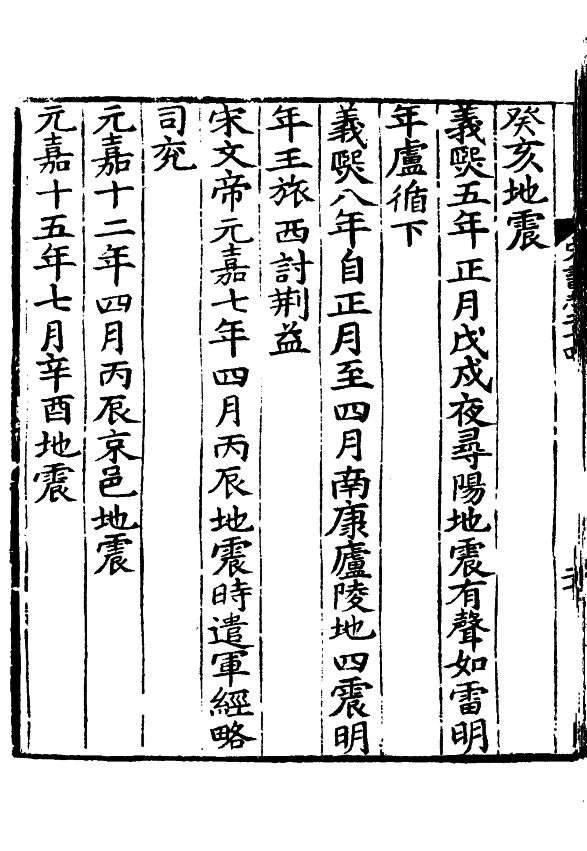 癸亥地震
義熙五年正月戊戌夜尋陽地震有聲如雷明
年盧循下
義熙八年自正月至四月南康廬陵地四震明
年王旅西討荆益
宋文帝元嘉七年四月丙辰地震時遣軍經略
司兖
元嘉十二年四月丙辰京邑地震
元嘉十五年七月辛酉地震